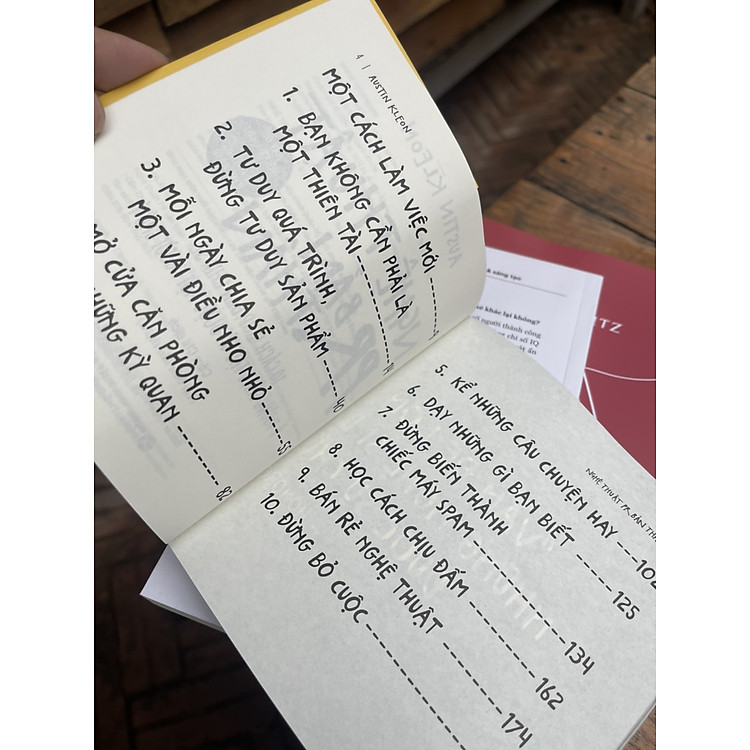 4 | AUSTIN KLEON
MỘT CÁCH LÀM VIỆC MỚI
1. BẠN KHÔNG CẦN PHẢI LÀ
MỘT THIÊN TÀI
2. TƯ DUY QUÁ TRÌNH,
ĐỪNG TƯ DUY SẢN PHẨM 40
3. MỖI NGÀY CHIA SẺ
MỘT VÀI ĐIỀU NHO NHỎ 55
MỞ CỬA CĂN PHÒNG
NHỮNG KỲ QUAN 82
NGHỆ THUẬT PR BẢN
5. KỂ NHỮNG CÂU CHUYỆN HAY 102
6. DẠY NHỮNG GÌ BẠN BIẾT 125
7. ĐỪNG BIẾN THÀNH
CHIẾC MÁY SPAM 134
8. HỌC CÁCH CHỊU ĐẤM 162
9. BÁN RẺ NGHỆ THUẬT 174
10. ĐỪNG BỎ CUỘC
sáng tạo
khác lại không?
người thành công
chỉ số IQ
TZ